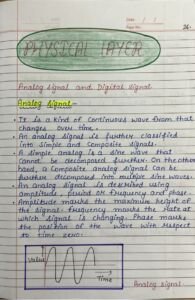 Date
Page No.
26.
PHYSICAL LAYER
Analog signal and Digital signal
Analog signal -
• It is a kind of Continuous wave form that
changes over time.
• An analog signal is further classified
into simple and Composite signals.
• A simple analog is a sine wave that
Cannot be decomposed further. On the other
hand, a Composite analog signal can be
further decomposed into multiple sine waves.
• An analog signal is described using
amplitude, period or frequency and phase.
• Amplitude marks the maximum height of
the signal. frequency marks the rate at
which signal is changing. Phase marks
the position of the wave with respect
to time zero.
Value
Time
Analog signal